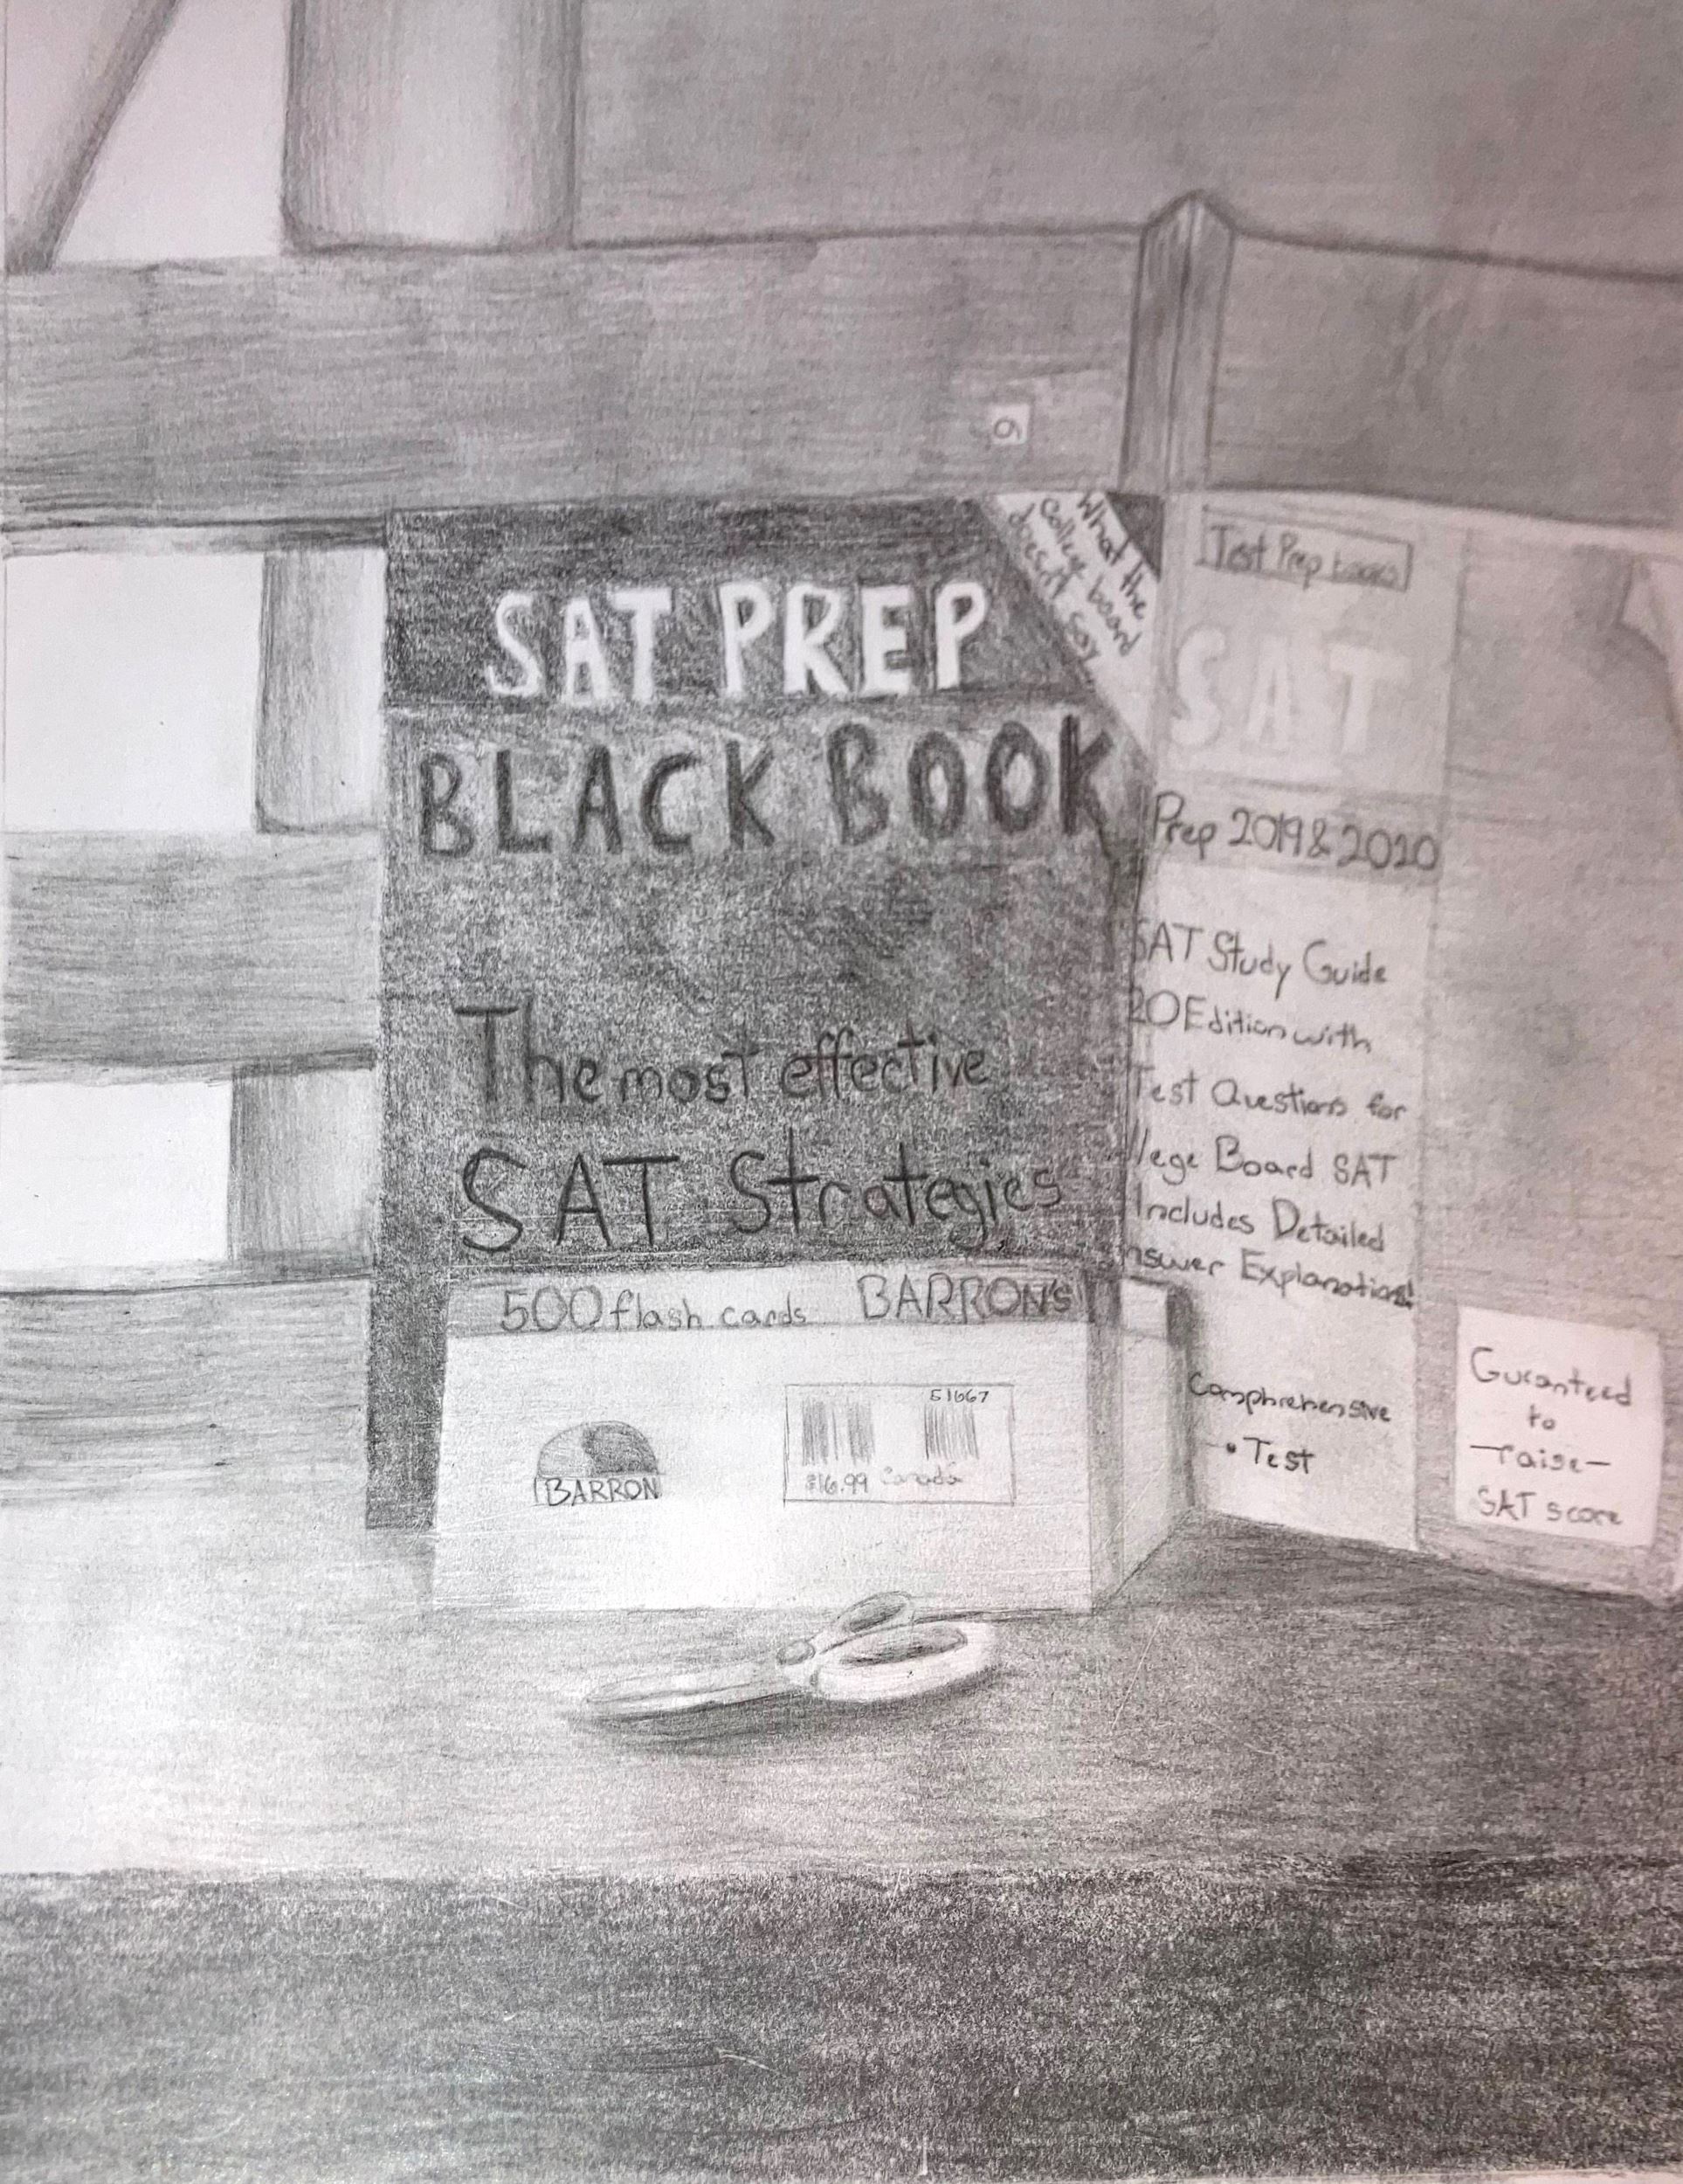 6
What the
College board
doesn't say
SAT PREP
BLACK BOOK
The most effective
SAT Strategies
500 flash cards BARRON'S
BARRON
51667
$16.99 Canada
Test Prep books
SAT
Prep 2019 & 2020
SAT Study Guide
20 Edition with
Test Questions for
llege Board SAT
Includes Detailed
nswer Explanations!
Comphrehensive
• Test
Guranteed
to
–raise–
SAT score